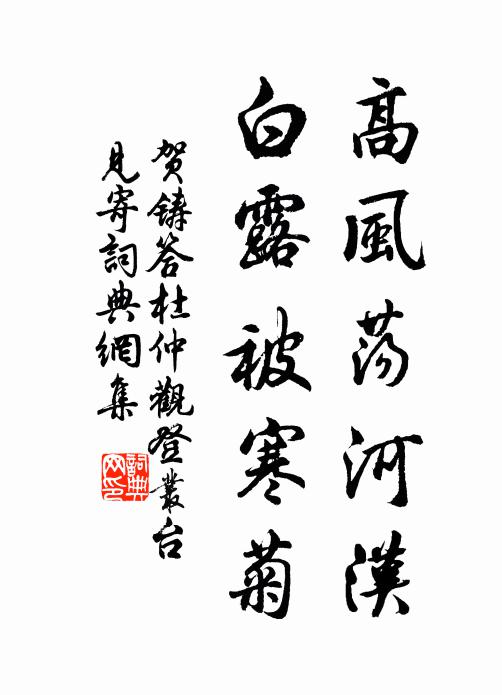 高風蕩河漢
白露被寒菊
贺鑄答杜仲觀登叢台
見寄詞典網集
詞典
网印